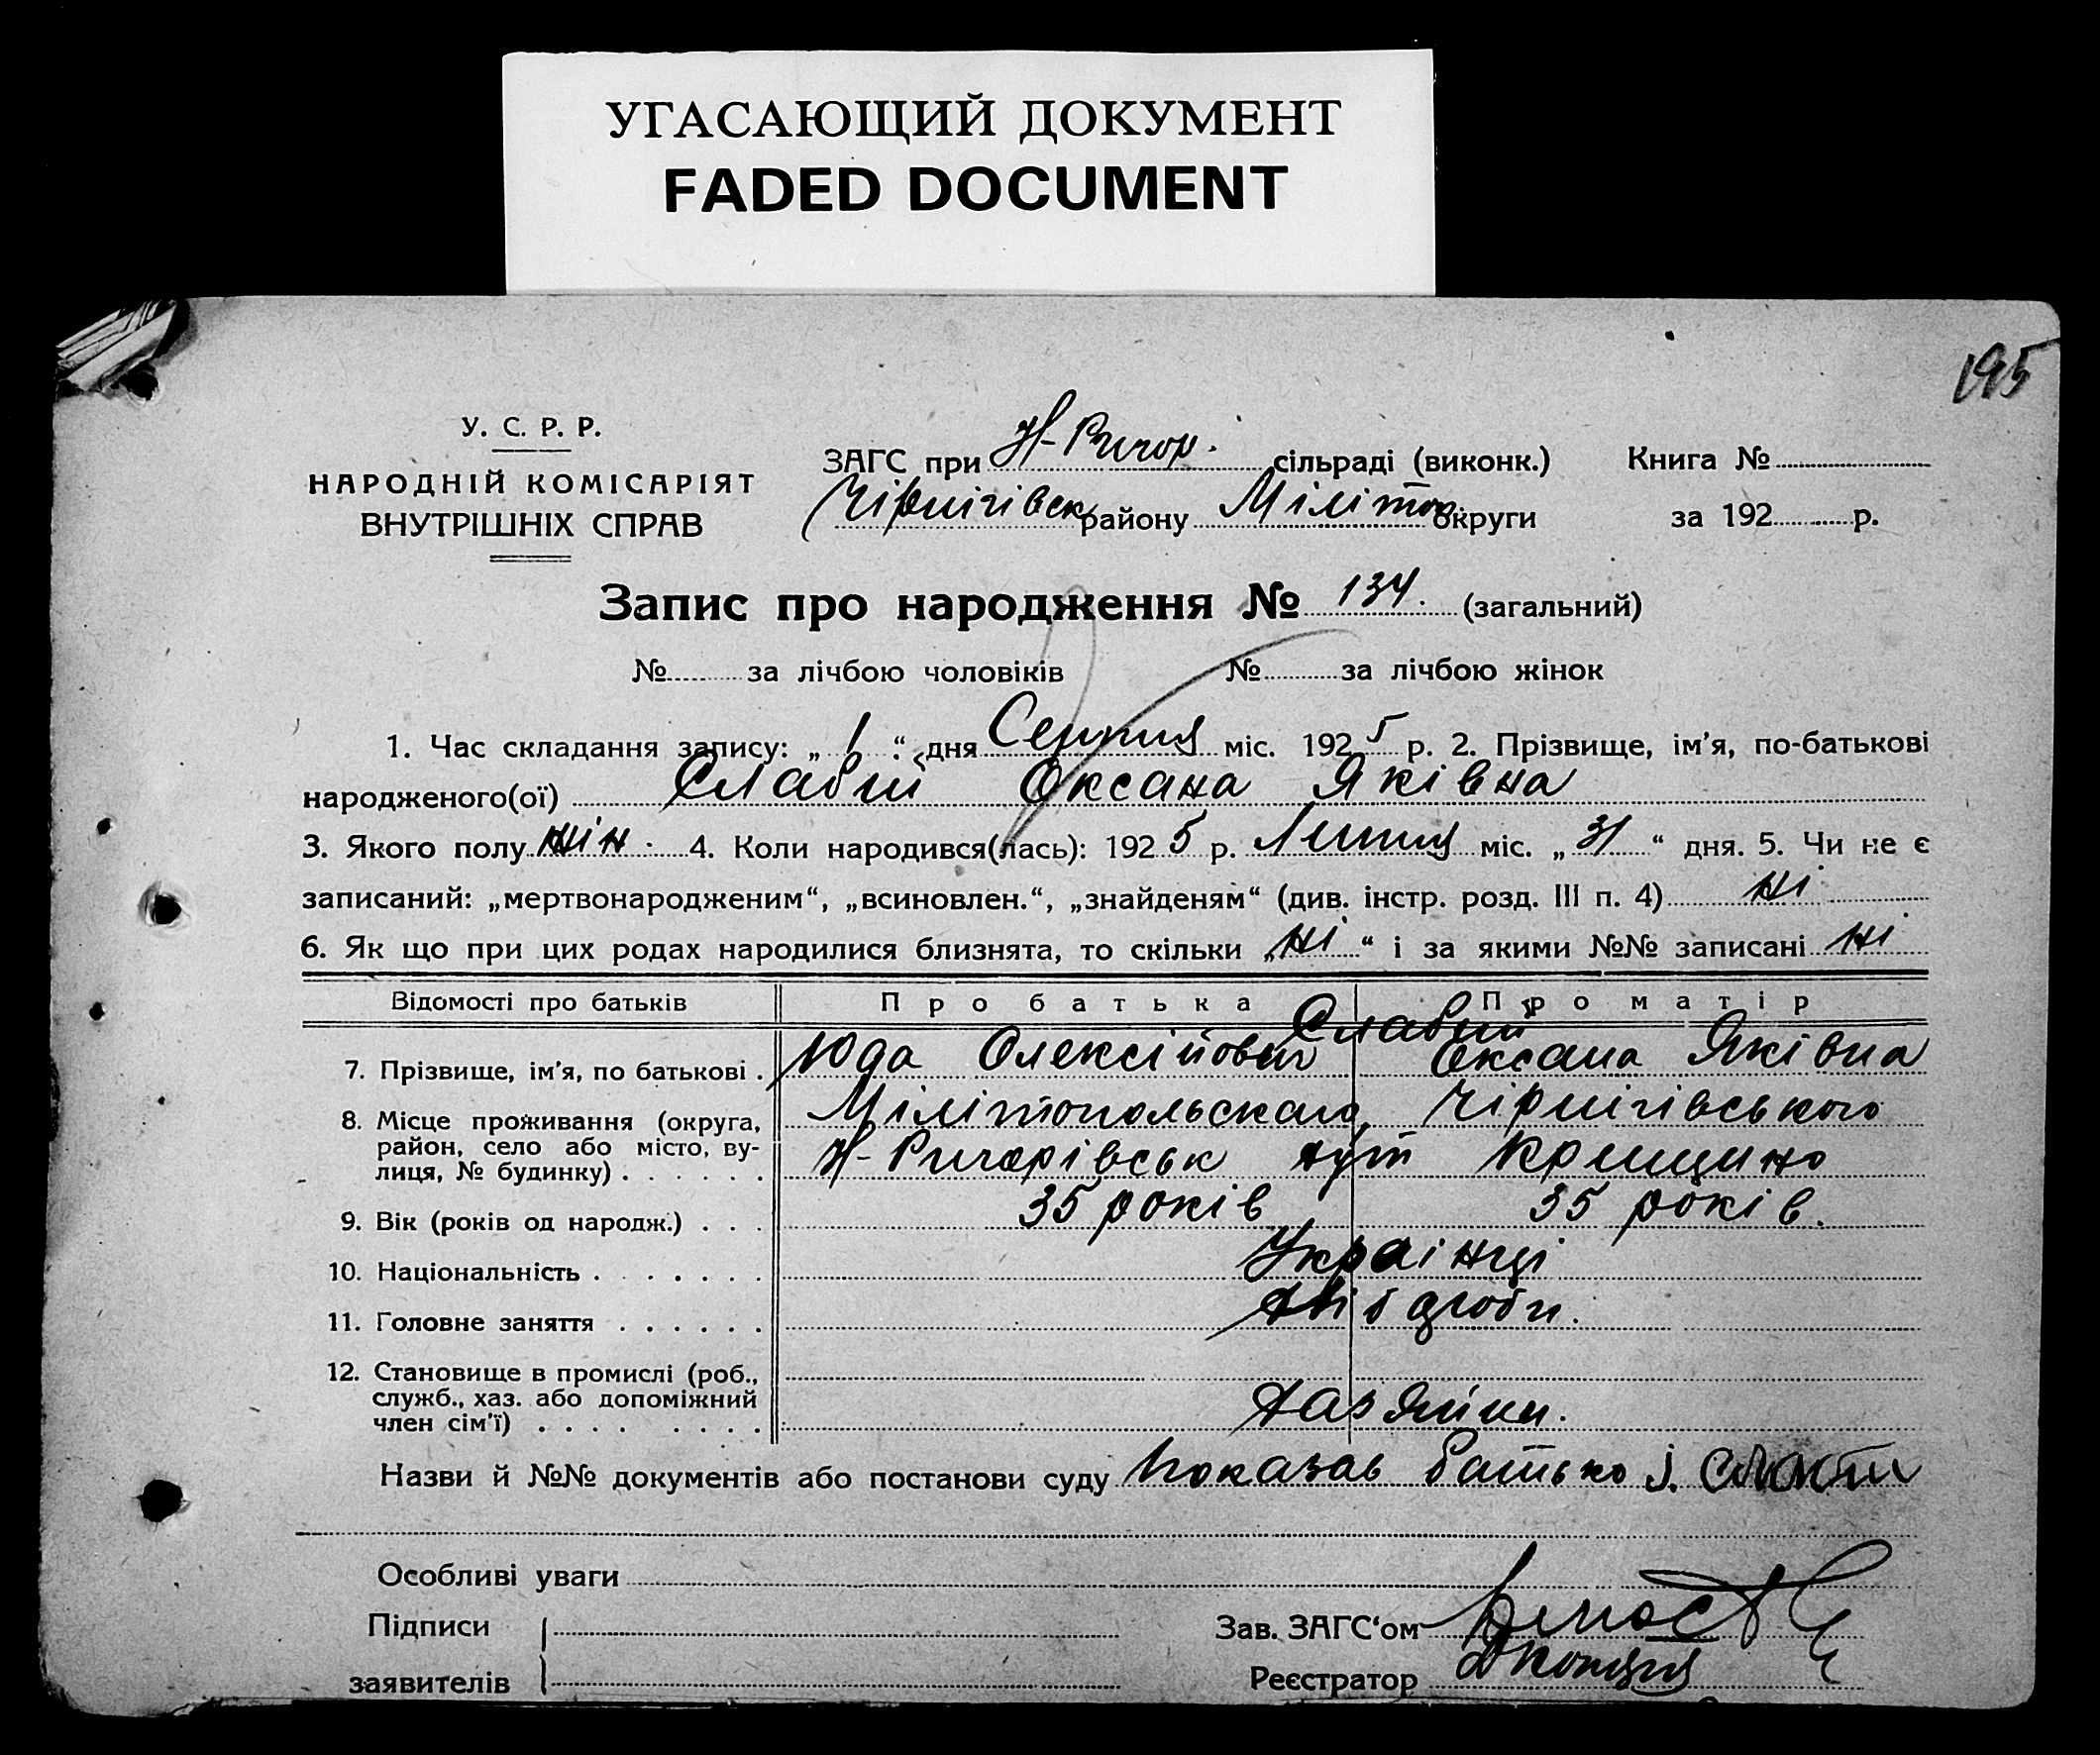 УГАСАЮЩИЙ ДОКУМЕНТ
FADED DOCUMENT
195
У. С. Р. Р.
НАРОДНІЙ КОМІСАРІЯТ
ВНУТРІШНІХ СПРАВ
ЗАГС при Н-Ригор. сільраді (виконк.)
Чірнігівск району Міліто округи
Книга №
за 192 р.
Запис про народження № 134. (загальний)
№ за лічбою чоловіків № за лічбою жінок
1. Час складання запису: „ 1 “ дня Серпня міс. 192 5 р. 2. Прізвище, ім’я, по-батькові
народженого(ої) Слабий Оксана Яківна
3. Якого полу жін. 4. Коли народився(лась): 192 5 р. Липня міс. „ 31 “ дня. 5. Чи не є
записаний: „мертвонародженим“, „всиновлен.“, „знайденям“ (див. інстр. розд. III п. 4) ні
6. Як що при цих родах народилися близнята, то скільки „ ні “ і за якими №№ записані ні
Відомості про батьків Про батька Про матір
Слабий
7. Прізвище, ім’я, по батькові . Олексійович Оксана Яківна
8. Місце проживання (округа, Мілітопольскаго, Чірнігівського
район, село або місто, ву- Н-Ригорівськ
лиця, № будинку) . . . . . .
9. Вік (років од народж.) . . . 35 років 35 років.
10. Національність . . . . . . . Українці
11. Головне заняття . . . . . . Хлібдроби.
12. Становище в промислі (роб.,
служб., хаз. або допоміжний
член сім’ї) . . . . . . . . Хазяйни.
Назви й №№ документів або постанови суду показав батько
Особливі уваги
Підписи
заявителів
Зав. ЗАГС‘ом
Реєстратор